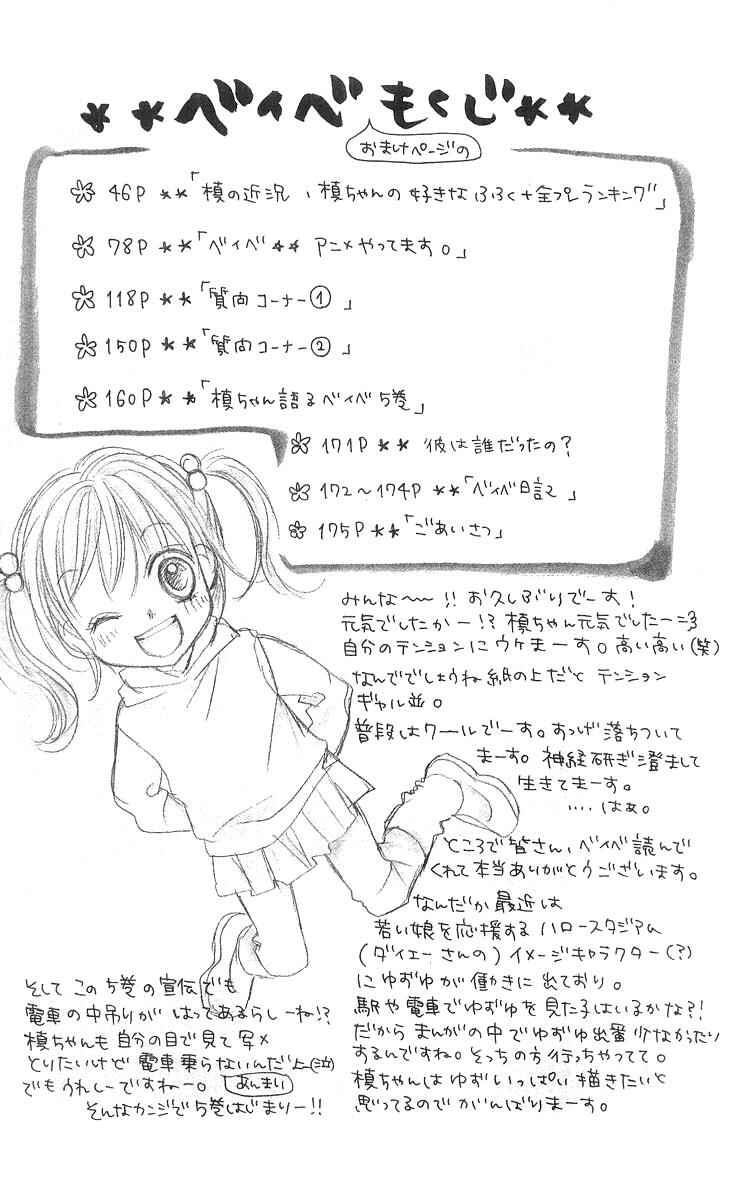 **ベイべ もくじ**
おまけページの
46P **「槙の近況、槙ちゃんの好きなふろく+全プレランキング」
78P **「ベイベ** アニメやってます。」
118P **「質問コーナー①」
150P **「質問コーナー②」
160P **「槙ちゃん語るベイベ5巻」
171P ** 彼は誰だったの?
172〜174P **「ベイベ日記」
175P **「ごあいさつ」
みんな〜〜!!お久しぶりでーす!
元気でしたかー!?槙ちゃん元気でしたー
自分のテンションにウケまーす。高い高い(笑)
なんででしょうね紙の上だと テンション
ギャル並。
普段はクールでーす。すっげ落ちついて
まーす。神経研ぎ澄まして
生きてまーす。
‥‥はぁ。
ところで皆さん、ベイベ読んで
くれて本当ありがとうございます。
なんだか最近は
若い娘を応援する ハロースタジアム
(ダイエーさんの)イメージキャラクター(?)
にゆずゆが働きに出ており。
駅や電車でゆずゆを見た子はいるかな?!
だから まんがの中でゆずゆ出番少なかったり
するんですね。そっちの方行っちゃってて。
槙ちゃんは ゆずいっぱい描きたいと
思ってるので がんばりまーす。
そして この5巻の宣伝でも
電車の中吊りが はってあるらしーね!?
槙ちゃんも 自分の目で見て 写メ
とりたいけど 電車乗らないんだよ(泣)
でもうれしーですねー。あんまい
そんなカンジで5巻はじまりー!!